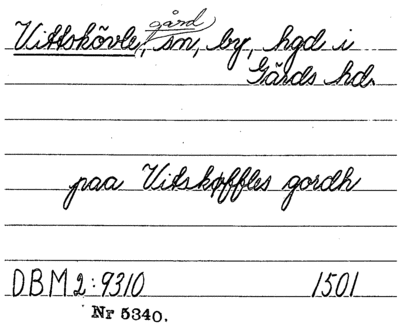 gård
Vittskövle, sn, by, hgd i
Gärds hd.
paa Vitskøffles gordh
DBM 2:9310 1501
Nr 5340.